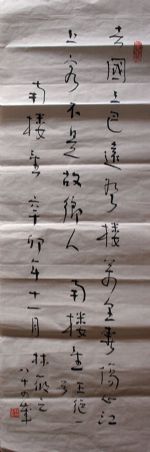 去國三巴遠登樓萬里春傷心江
上客不是故鄉人 南樓望
南樓望 辛卯年十一月 林筱之
八十四歲